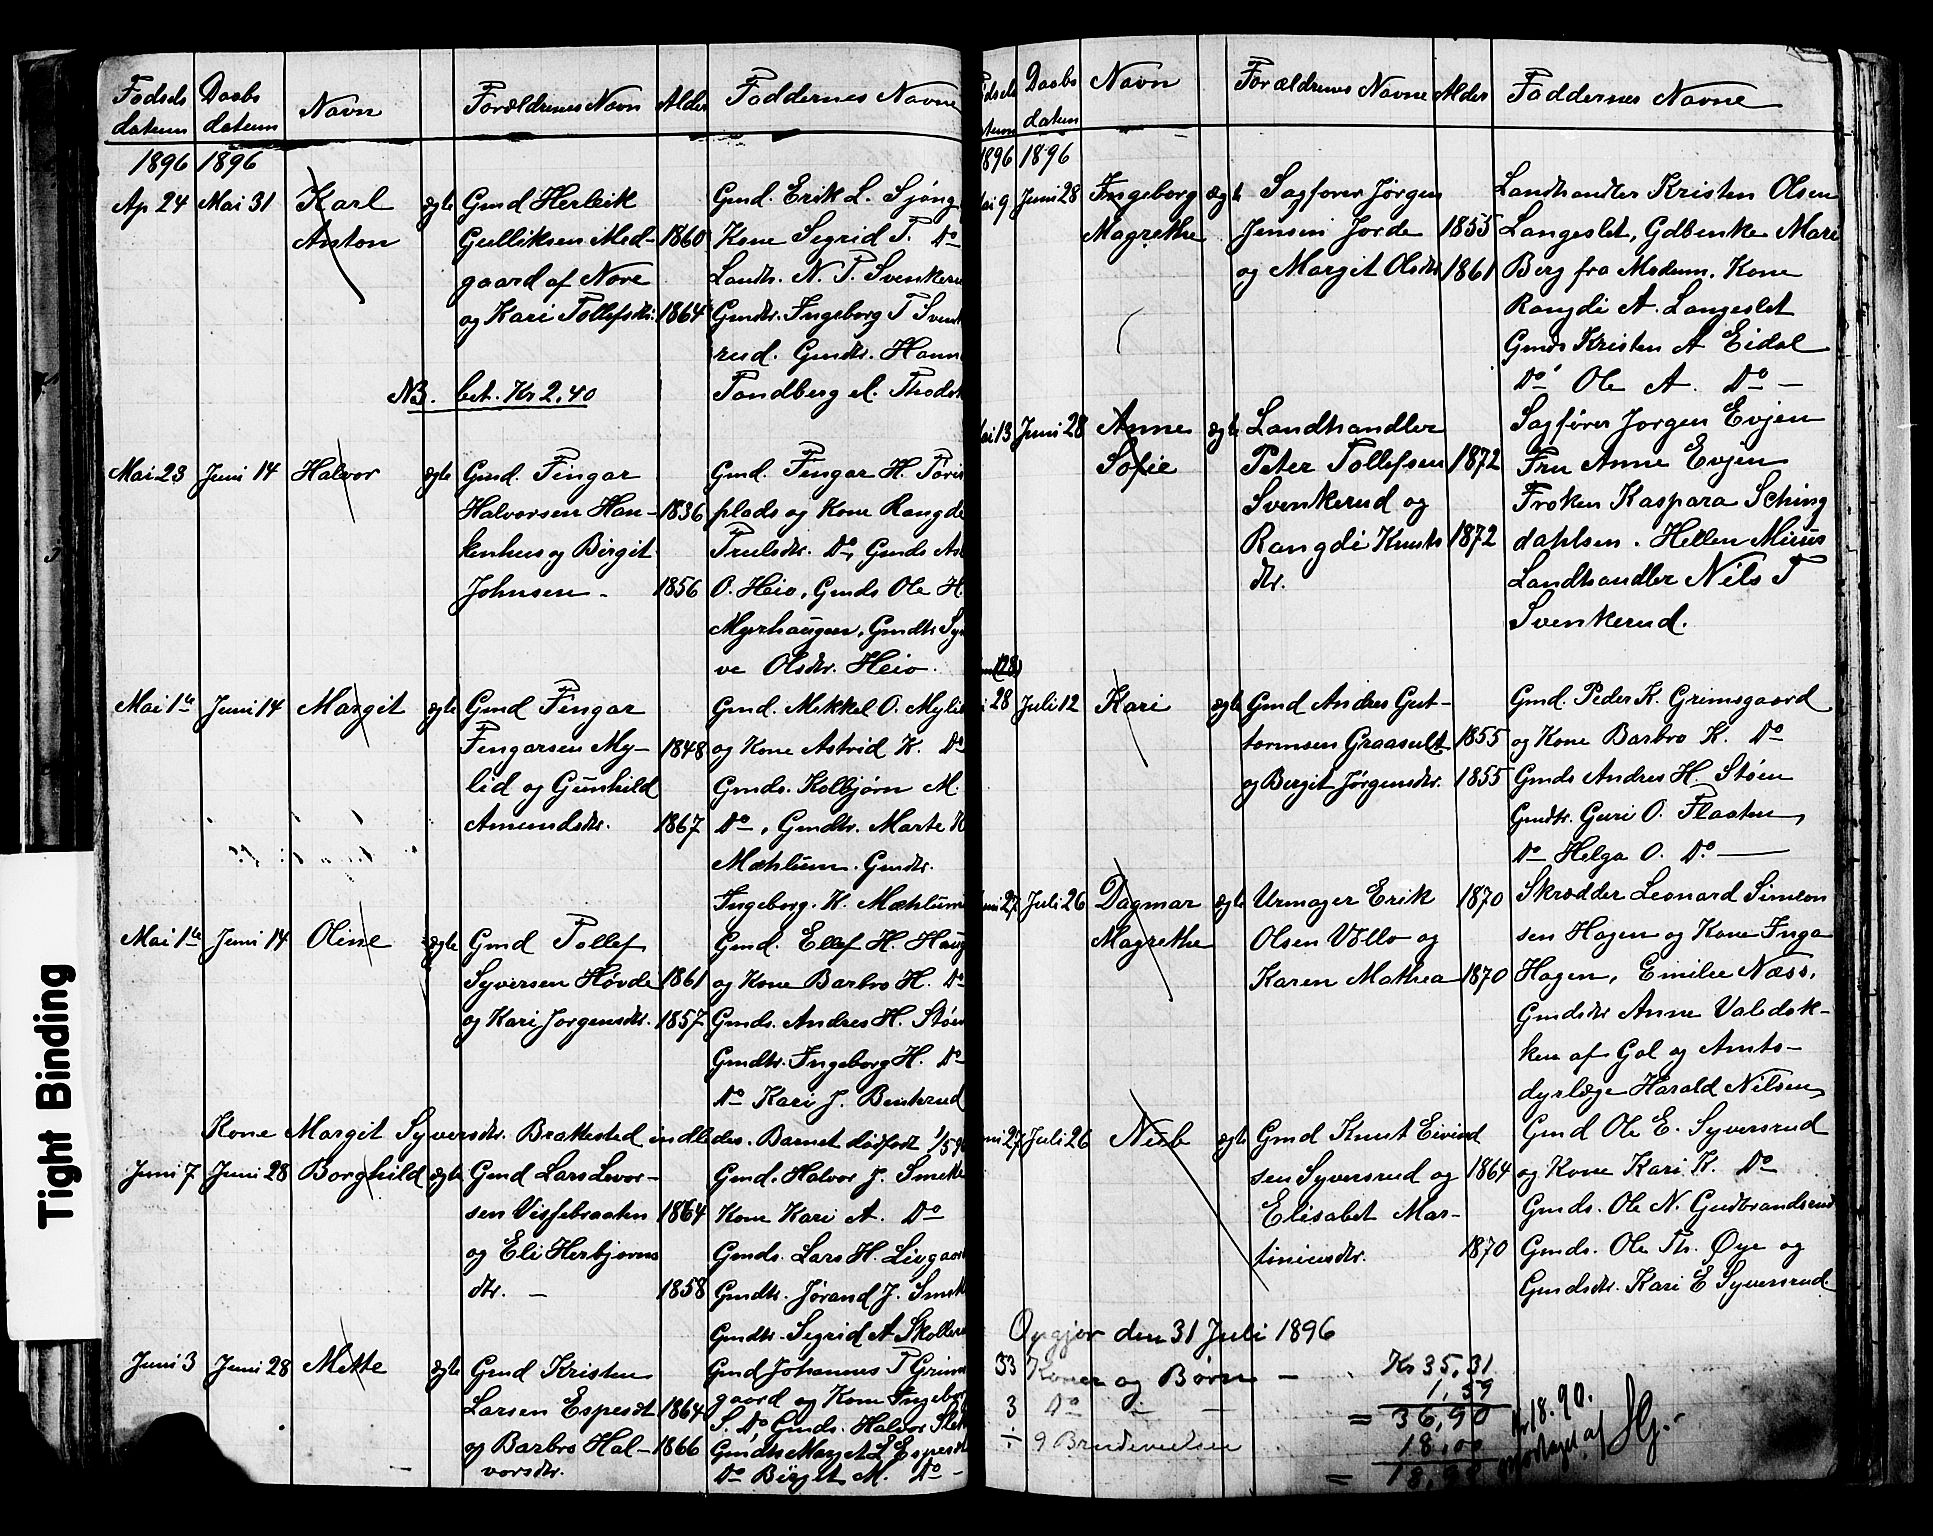 Fødsels Daabs
datum datum Navn Forældrenes Navn Alder Faddernes Navne
1896 1896
Ap 24 Mai 31 Karl ægte Gmd Herleik Gmd. Erik L. Sjøng
Anton Gulliksen Med- 1860 Kone Segrid T. Do
gaard af Nore Landh. N. T. Svenkeru
og Kari Tollefsdtr. 1864 Gmdtr. Ingeborg T Svenk
rud. Gmdtr. Hann
NB. bet. Kr 2,40 Tandberg
Mai 23 Juni 14 Halvor ægte Gmd. Fingar Gmd. Fingar H. Tøris
Halvorsen Han- 1836 plads og Kone Rangde
kenhus og Birgit Trulsdtr. Do, Gmds As
Johnsen - 1856 O. Heio, Gmds Ole H.
Myrhaugen, Gmdtr Sy
ve Olsdtr. Heio.
Mai 1te Juni 14 Margit ægte Gmd Fingar Gmd. Mekkel O. Mylid
Fingarsen My- 1848 og Kone Astrid K. Do
lid og Gunhild Gmds. Kolbjørn M.
Amundsdtr. 1867 Do, Gmdtr. Marte K
Mæhlum. Gmdtr.
Ingeborg. K. Mæhlum
Mai 1te Juni 14 Oline ægte Gmd Tollef Gmd. Ellef H. Haug
Syversen Høvde 1861 og Kone Barbro H. Do
og Kari Jorgensdtr. 1857 Gmds. Andres H. Støen
Gmdtr. Ingeborg H. Do
Do Kari J. Benterud
Kone Margit Syversdtr. Brattested indledes. Barnet dødfødt 1/5 96
Juni 7 Juni 28 Borghild ægte Gmd Lars Levor- Gmd. Halvor J. Smette
sen Vissebraaten 1864 Kone Kari A. Do
og Eli Herbjorns Gmds. Lars H. Livgaard
dtr. - 1858 Gmdtr. Jørand J. Smett
Gmdtr. Segrid A Skollerud
Juni 3 Juni 28 Mette ægte Gmd Kristen Gmd Johannes T Grims
Larsen Espesdt 1864 gaard og Kone Ingeborg
og Barbro Hal- 1866 S. Do, Gmds. Halvor
vorsdtr. Gmdtr Margit L Espesdt
Do Birgit M. Do -
Fødsels Daabs Navn Forældrenes Navne Alder Faddernes Navne
datum datum
1896 1896
Mai 9 Juni 28 Ingeborg ægte Sagfører Jørgen Landhandler Kristen Olsen
Magrethe Jensen Jorde 1855 Langeslet, Gdbenke Mari
og Margit Olsdtr 1861 Berg fra Modum. Kone
Rangdi A. Langeslet
Gmds Kristen A Eidal
Do Ole A. Do -
Mai 13 Juni 28 Anne ægte Landhandler Sagfører Jorgen Evjen
Sofie Peter Tollefsen 1872 Fru Anne Evjen
Svenkerud og Frøken Kaspara Sching
Rangdi Knuts 1872 dahlsen. Hellen Miius
dtr. Landhandler Nils T
Svenkerud.
(28)
28 Juli 12 Kari ægte Gmd Andres Gut- Gmd. Peder K. Grimsgaard
tormsen Graasult 1855 og Kone Barbro K. Do
og Bergit Jørgensdtr. 1855 Gmds Andres H. Støen
Gmdtr. Guri O. Flaaten,
Do Helga O. Do. -
Juni 27 Juli 26 Dagmar ægte Urmager Erik 1870 Skrædder Leonard Simeon
Magrethe Olsen Vøllo og sen Hagen og Kone Inga
Karen Mathea 1870 Hagen, Emilie Næss,
Gmdsdtr Anne Valedok-
ken af Gol og Amts-
dyrlæge Harald Nilsen,
Juni 27 Juli 26 Niels ægte Gmd Knut Eivind Gmd Ole E. Syversrud
sen Syversrud og 1864 og Kone Kari K. Do
Elisabet Mar- Gmds. Ole N. Gudbrandsrud
tiniusdtr. 1870 Gmds. Ole Th. Øye og
Gmdsdtr. Kari E Syversrud.
Opgjør den 31 Juli 1896
33 Koner og Børn - Kr 35,31
3 Do - 1,59
= 36,90
÷ 9 Brudevielser 18,00
= 18,90
Kr 18.90.
modtaget af HG.
Tight Binding